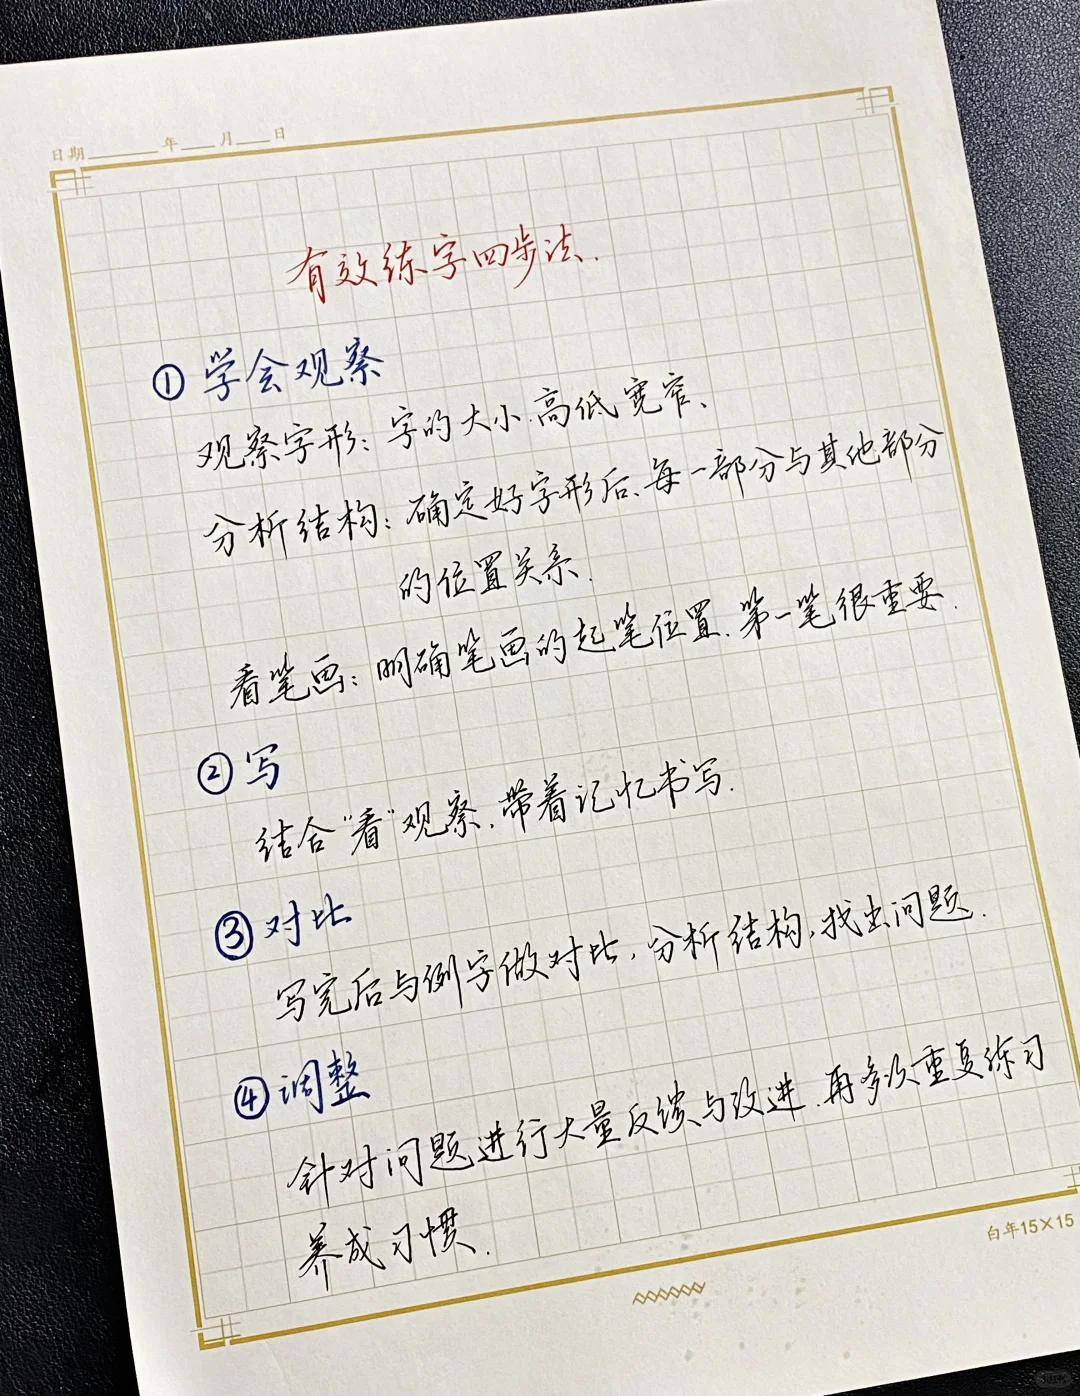 日期____年__月__日
有效练字四步法.
①学会观察
观察字形:字的大小.高低宽窄、
分析结构:确定好字形后、每一部分与其他部分
的位置关系.
看笔画:明确笔画的起笔位置.第一笔很重要.
②写
结合“看”观察.带着记忆书写.
③对比
写完后与例字做对比,分析结构,找出问题.
④调整
针对问题进行大量反馈与改进.再多次重复练习
养成习惯.
白年15×15